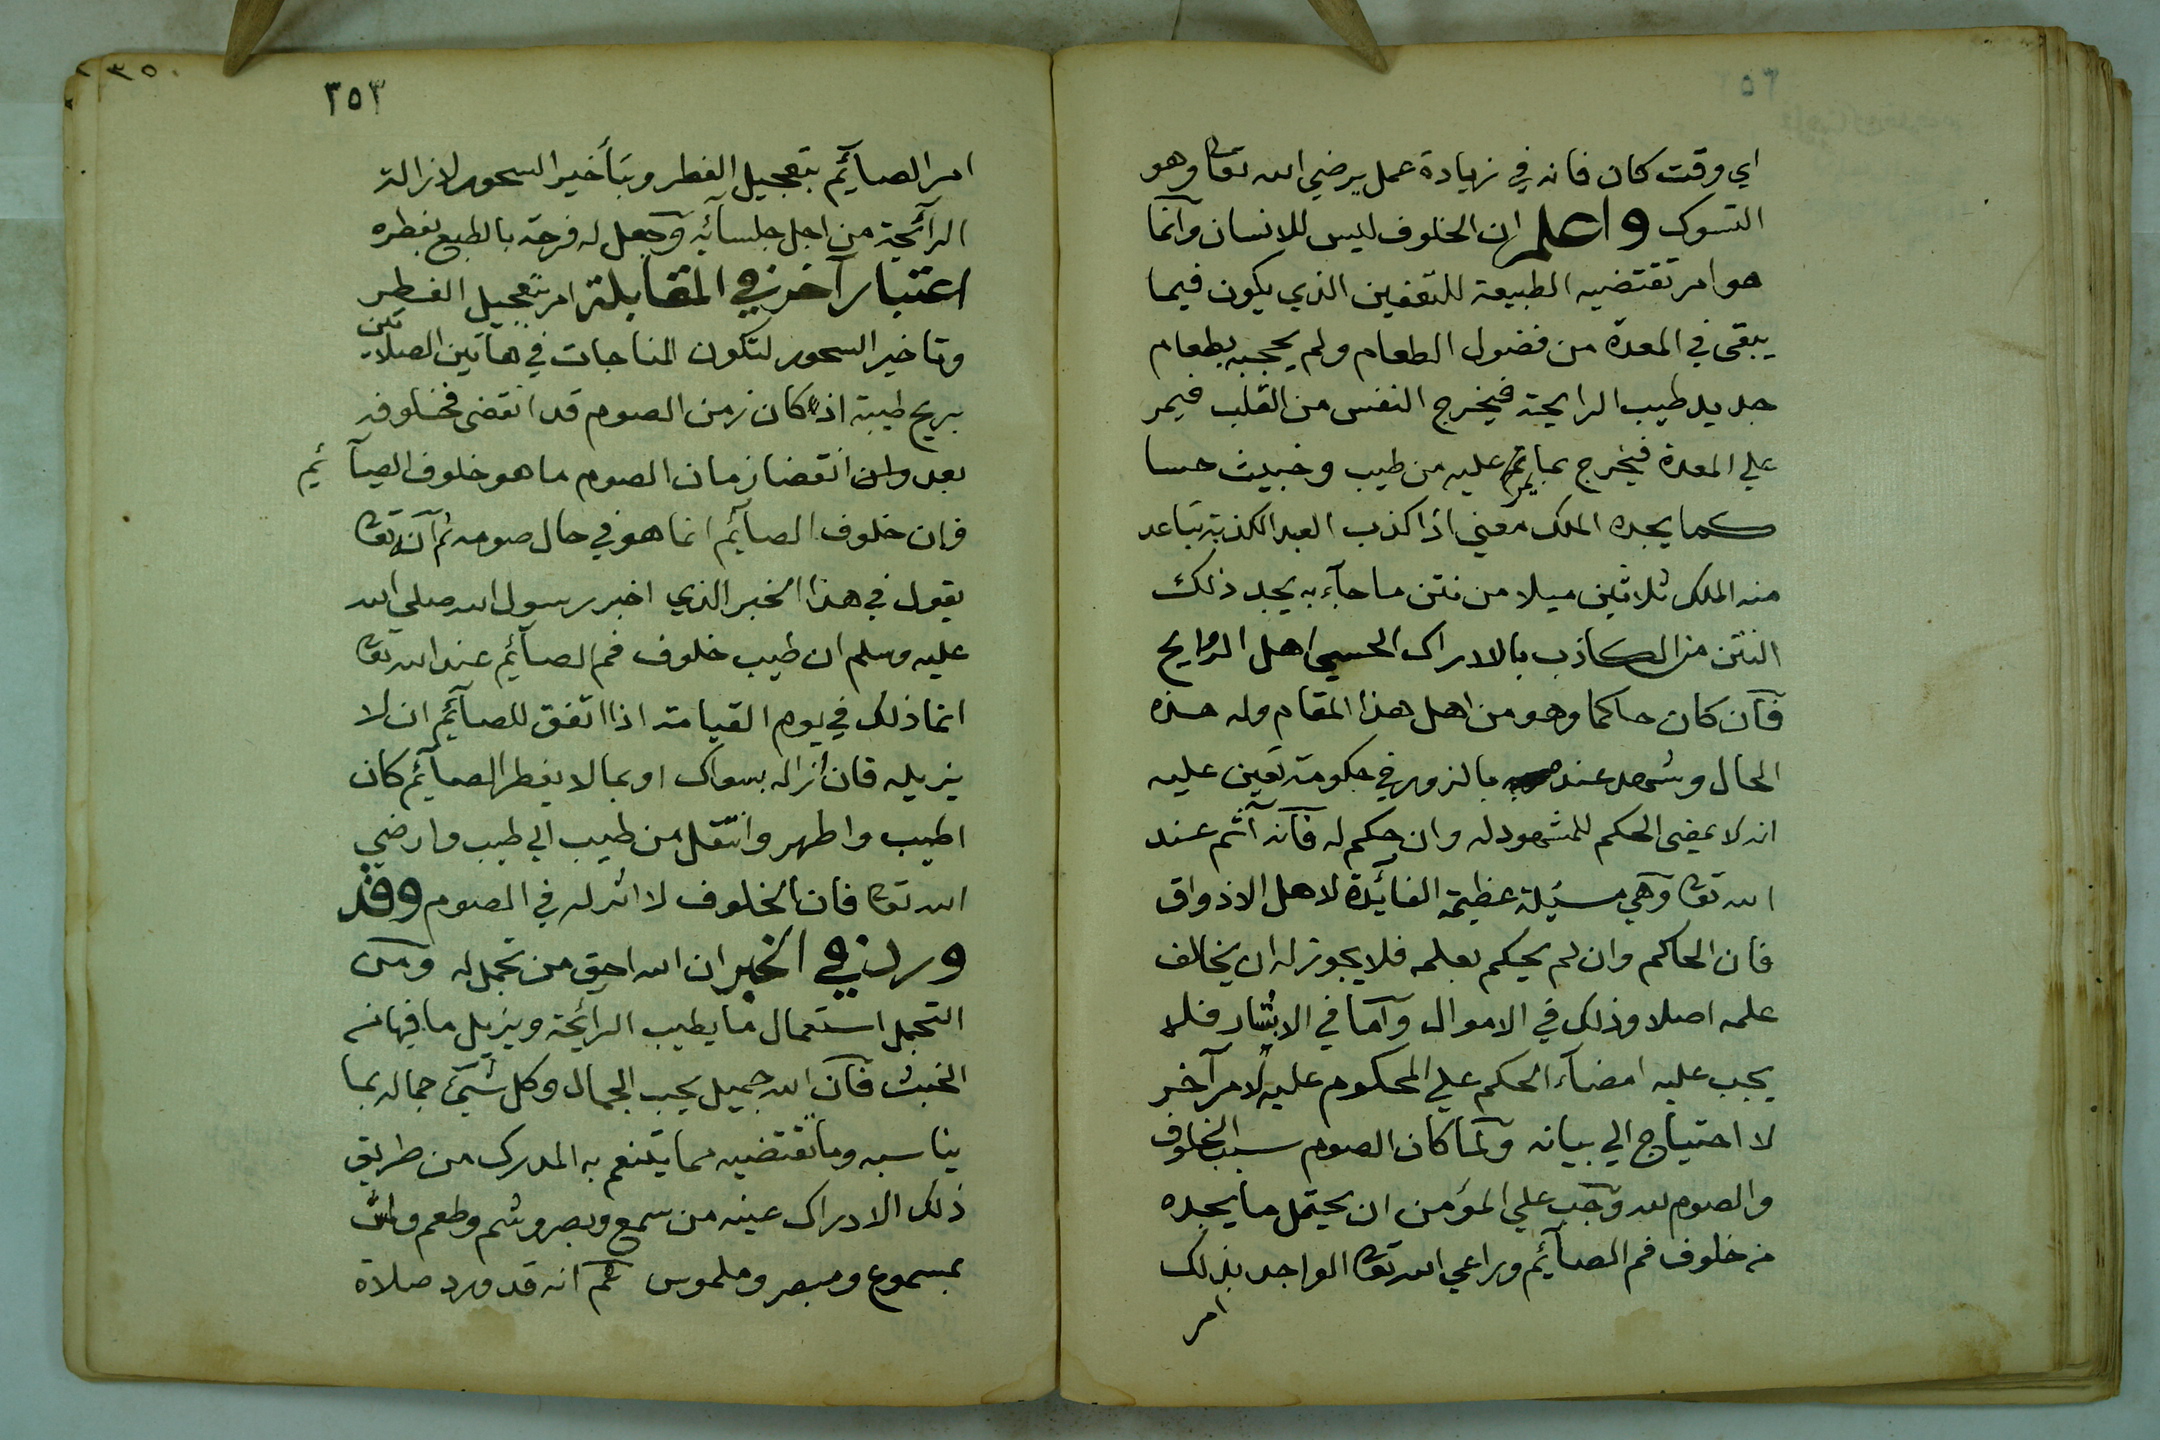 اي وقت كان فانه في زيادة عمل يرضي الله تعا وهو
التسوك واعلم ان الخلوف ليس للانسان وآنما
هو امر تقتضيه الطبيعة للتعفين الذي يكون فيما
يبقى في المعدة من فضول الطعام ولم يحجبه بطعام
جديد طيب الرايحة فيخرج النفس من القلب فيمر
علي المعدة فيخرج بما يمر عليه من طيب وخبيث حسا
كما يجده الملك معني اذا كذب العبد الكذبة تباعد
منه الملك ثلاثين ميلا من نتن ما جآء به يجد ذلك
النتن من الكاذب بالادراك الحسي اهل الروايح
فآن كان حاكما وهو من اهل هذا المقام وله هذه
الحال وشهد عنده بالزور في حكومة تعين عليه
انه لا يمضي الحكم للمشهود له وان حكم له فآنه آثم عند
الله تعا وهي مسئلة عظيمة الفائدة لاهل الاذواق
فان الحاكم وان لم يحكم بعلمه فلا يجوز له ان يخالف
علمه اصلا وذلك في الاموال وآما في الابشار فلا
يجب عليه امضآء الحكم علي المحكوم عليه لامر آخر
لا احتياج الي بيانه ولما كان الصوم سبب الخلوف
والصوم لله وجب علي المؤمن ان يحتمل ما يجده
من خلوف فم الصآئم وراعي الله تعا الواجد بذلك
امر
٣٥٣
امر الصآئم بتعجيل الفطر وبتأخير السحور لازالة
الرآئحة من اجل جلسآئه وجعل له فرحة بالطبع بفطره
اعتبار آخر في المقابلة امر بتعجيل الفطر
وتاخير السحور لتكون المناجات في هاتين الصلاتين
بريح طيبة اذ كان زمن الصوم قد انقضى فخلوفه
بعد وان انقضا زمان الصوم ما هو خلوف الصآئم
فان خلوف الصآئم انما هو في حال صومه ثم آنه تعا
يقول في هذا الخبر الذي اخبر رسول الله صلي الله
عليه وسلم ان طيب خلوف فم الصآئم عند الله تعا
انما ذلك في يوم القيامة اذا اتفق للصآئم ان لا
يزيله فان ازاله بسواك او بما لا يفطر الصآئم كان
اطيب واطهر وانتقل من طيب الي طيب وارضي
الله تعا فان الخلوف لا اثر له في الصوم وقد
ورد في الخبر ان الله احق من تجمل له ومن
التجمل استعمال ما يطيب الرائحة ويزيل ما فيها من
الخبث فآن الله جميل يحب الجمال وكل شيئ جماله بما
يناسبه وما تقتضيه مما يتنعم به المدرك من طريق
ذلك الادراك عينه من سمع وبصر وشم وطعم ولمس
بمسموع ومبصر وملموس ثم انه قد ورد صلاة